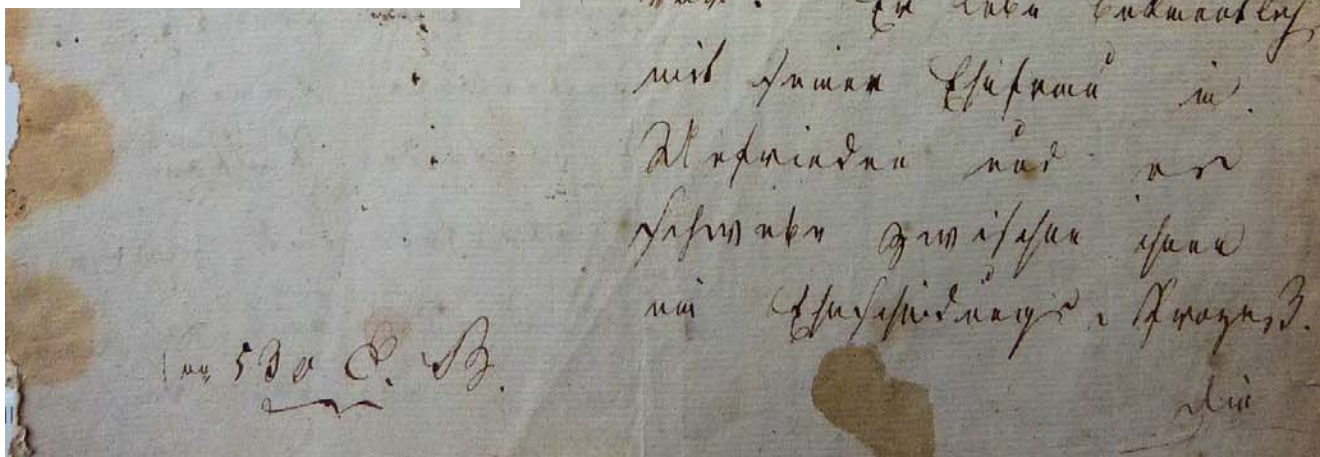 Er lebe bekanntlich
mit seiner Ehefrau in
Unfrieden und es
schwebe zwischen ihnen
ein Ehescheidungs-Prozeß.
530
Die